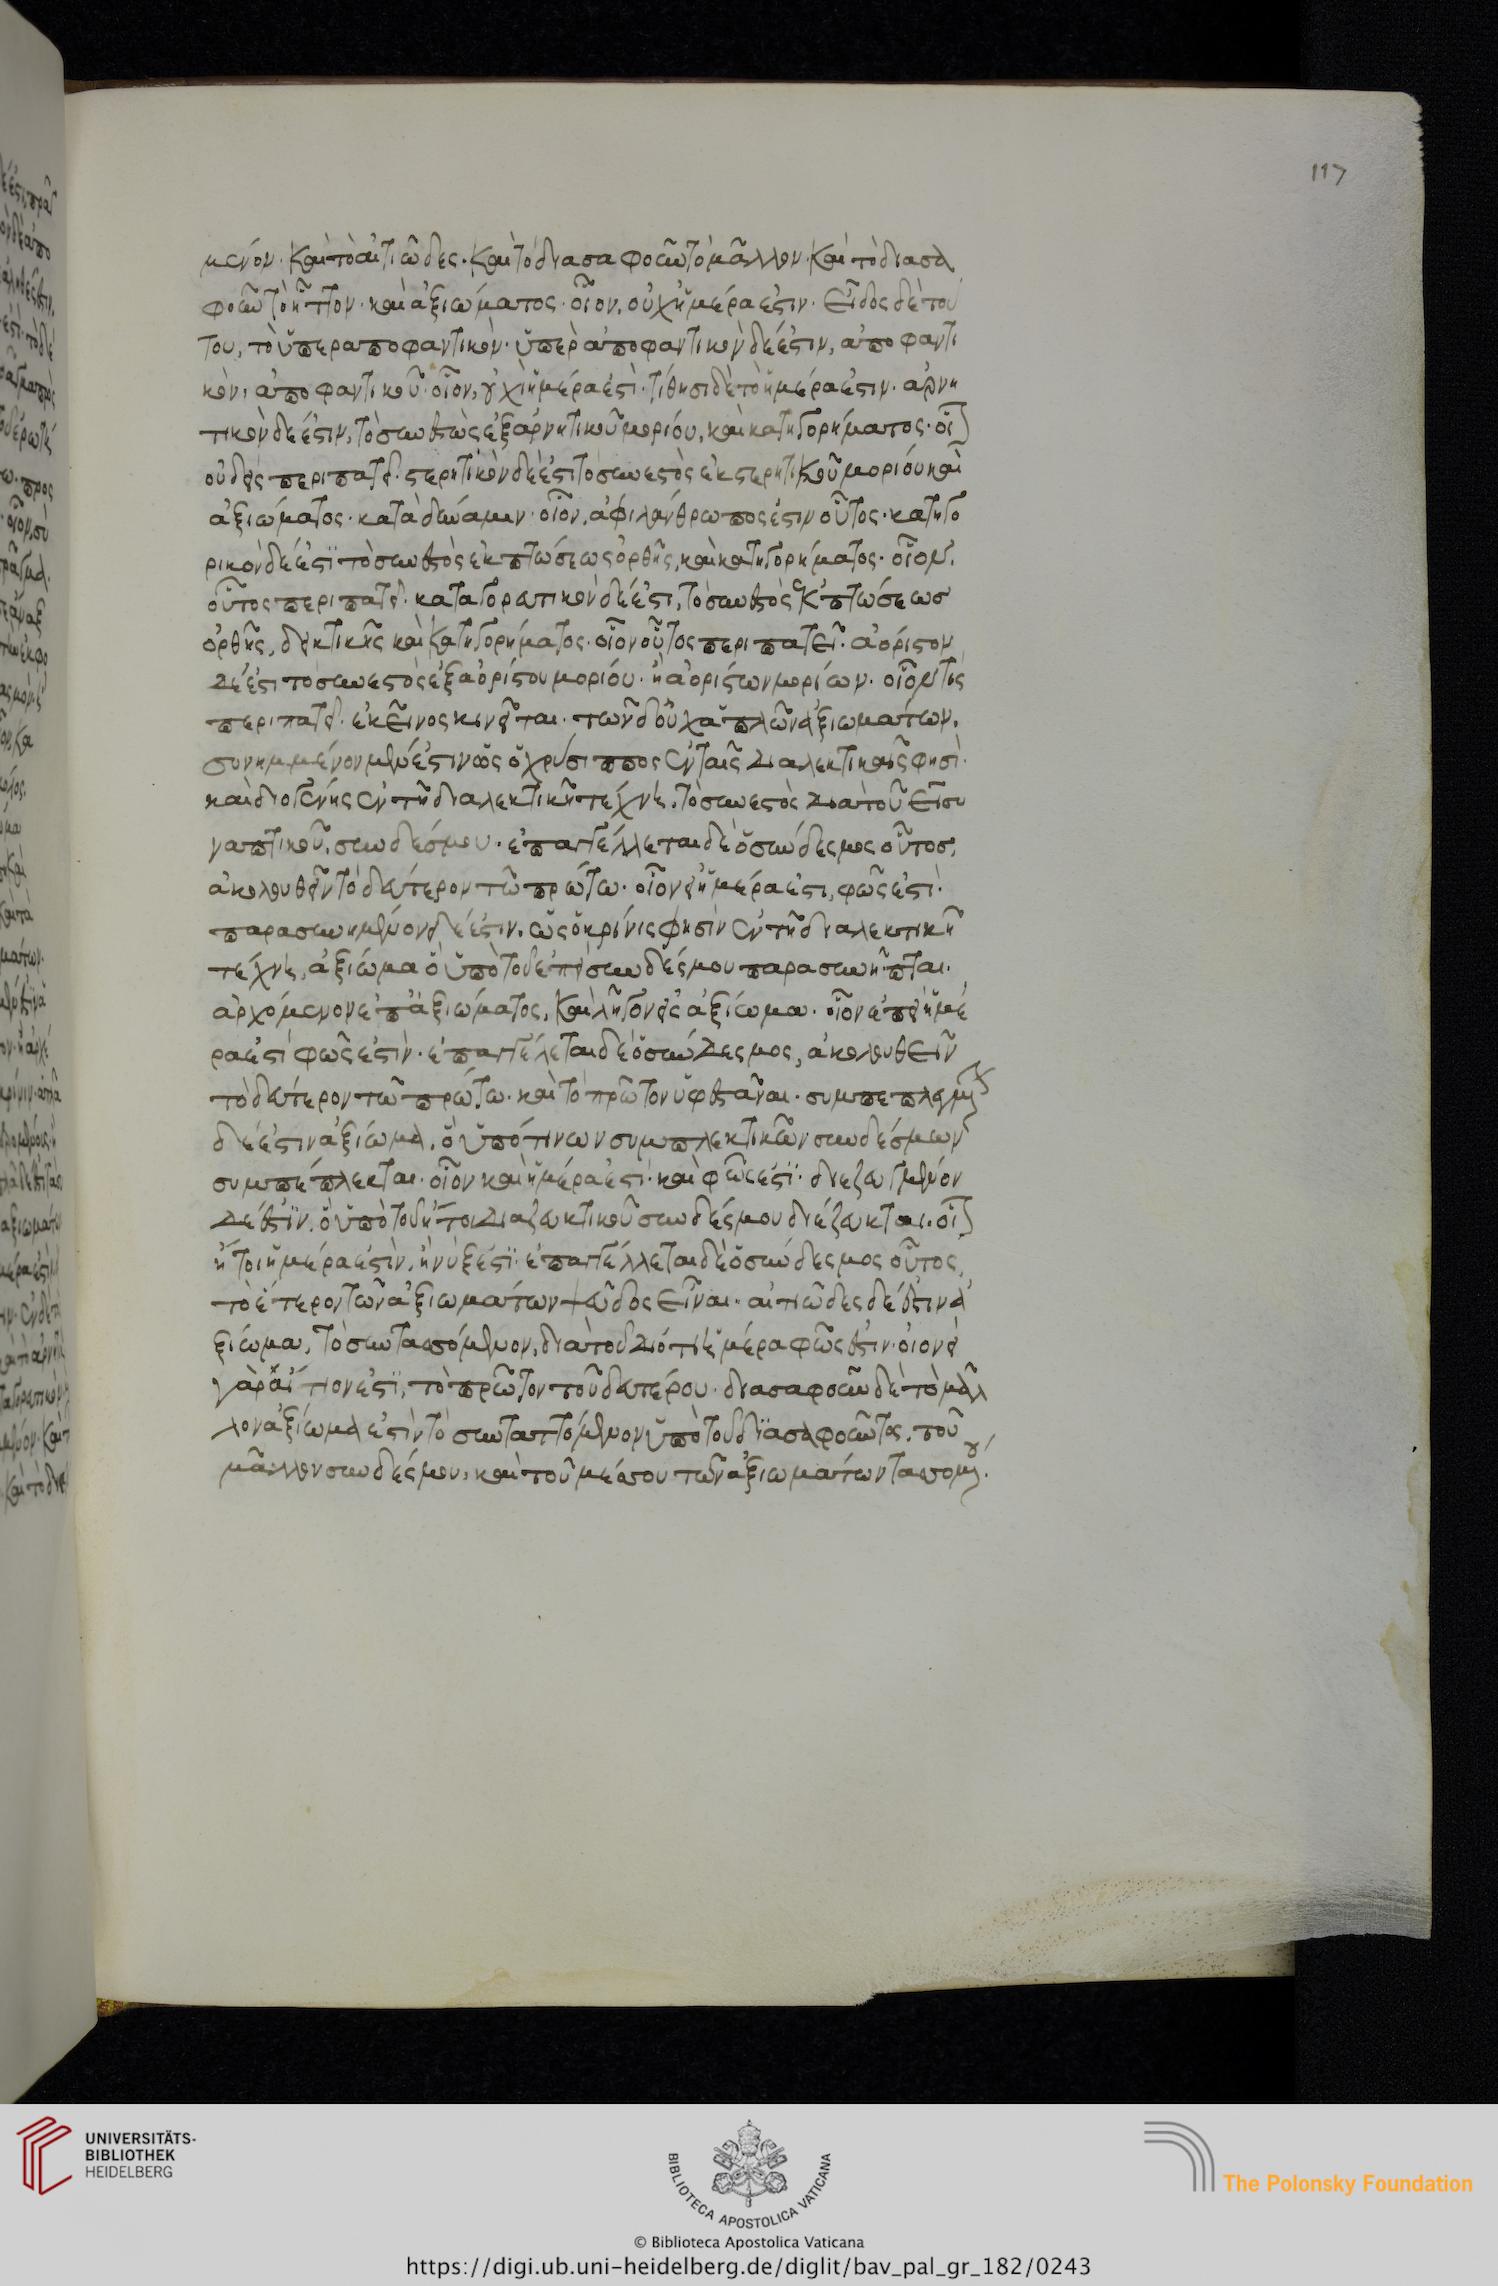 117
μενόν· καὶ τὸ αἰτιῶδες· καὶ τὸ διασαφοῦν τὸ μᾶλλον· καὶ τὸ διασα
φοῦν τὸ ἧττον· καὶ ἀξιώματος· οἷον, οὐχ ἡμέρα ἐστιν· εἶδος δὲ τού
του, τὸ ὑπεραποφαντικόν· ὑπερ ἀποφαντικὸν δέ ἐστιν, ἀποφαντι
κὸν, ἀποφαντικοῦ· οἷον, οὐχὶ ἡμέρα ἐστὶ· τίθησι δὲ τὸ ἡμέρα ἐστιν· ἀρνη
τικὸν δέ ἐστιν, τὸ συνεστὼς ἐξ ἀρνητικοῦ μορίου, καὶ κατηγορήματος· οἷ
οὐδεὶς περιπατεῖ· στερητικὸν δέ ἐστι τὸ συνεστὸς ἐκ στερητικοῦ μορίου καὶ
ἀξιώματος· κατὰ δύναμιν· οἷον, ἀφιλάνθρωπος ἐστιν οὗτος· κατηγο
ρικὸν δέ ἐστὶ τὸ συνεστὸς ἐκ πτώσεως ὀρθῆς, καὶ κατηγορήματος· οἷον,
οὗτος περιπατεῖ· καταγορατικὸν δέ ἐστι, τὸ συνεστὸς ἐκ πτώσεωσ
ὀρθῆς, δεικτικῆς καὶ κατηγορήματος· οἷον οὗτος περιπατεῖ· ἀόριστον
δέ ἐστι τὸ συνεστὸς ἐξ ἀορίστου μορίου· ἢ ἀορίστων μορίων· οἷον τὶς
περιπατεῖ· ἐκεῖνος κινεῖται· τῶν δ' οὐχ ἁπλῶν ἀξιωμάτων,
συνημμένον μέν ἐστιν ὡς ὁ χρύσιππος ἐν ταῖς διαλεκτικαῖς φησὶ·
καὶ διογένης ἐν τῆ διαλεκτικῆ τέχνη, τὸ συνεστὸς διὰ τοῦ εἰ συ
ναπτικοῦ, συνδέσμου· ἐπαγγέλλεται δὲ ὁ σύνδεσμος οὗτοσ,
ἀκολουθεῖν τὸ δεύτερον τῶ πρώτω· οἷον εἰ ἡμέρα ἐστι, φῶς ἐστὶ·
παρασυνημμένον δέ ἐστιν, ὡς ὁ κρίνις φησὶν ἐν τῆ διαλεκτικῆ
τέχνη, ἀξίωμα ὃ ὑπὸ τοῦ ἐπεὶ συνδέσμου παρασυνῆπται·
ἀρχόμενον ἐπ' ἀξιώματος, καὶ λῆγον εἰς ἀξίωμα· οἷον ἐπεὶ ἡμέ
ρα ἐστὶ φῶς ἐστὶν· ἐπαγγέλεται δὲ ὁ σύνδεσμος, ἀκολουθεῖν
τὸ δεύτερον τῶ πρώτω· καὶ τὸ πρῶτον ὑφεστάναι· συμπεπλεγμ
δέ ἐστιν ἀξίωμα, ὃ ὑπό τινων συμπλεκτικῶν συνδέσμων
συμπέπλεκται· οἷον καὶ ἡμέρα ἐστὶ· καὶ φῶς ἐστὶ· διεζευγμένον
δέ ἐστὶν, ὃ ὑπὸ τοῦ ἤτοι διαζευκτικοῦ συνδέσμου διέζευκται· οἷ
ἤτοι ἡμέρα ἐστὶν, ἢ νὺξ ἐστὶ· ἐπαγγέλλεται δὲ ὁ σύνδεσμος οὗτος,
τὸ ἕτερον τῶν ἀξιωμάτων ψεῦδος εἶναι· αἰτιῶδες δέ ἐστιν ἀ
ξίωμα, τὸ συντασσόμενον, διὰ τοῦ διότι ἡμέρα φῶς ἐστιν· οἱονεὶ
γὰρ αἴτιον ἐστὶ, τὸ πρῶτον τοῦ δευτέρου· διασαφοῦν δὲ τὸ μᾶλ
λον ἀξίωμα ἐστὶν τὸ συνταττόμενον ὑπὸ τοῦ διασαφοῦντος, τοῦ
μᾶλλον συνδέσμου, καὶ τοῦ μέσου τῶν ἀξιωμάτων τασσομ.
UNIVERSITÄTS-
BIBLIOTHEK
HEIDELBERG
BIBLIOTECA APOSTOLICA VATICANA
The Polonsky Foundation
© Biblioteca Apostolica Vaticana
https://digi.ub.uni-heidelberg.de/diglit/bav_pal_gr_182/0243